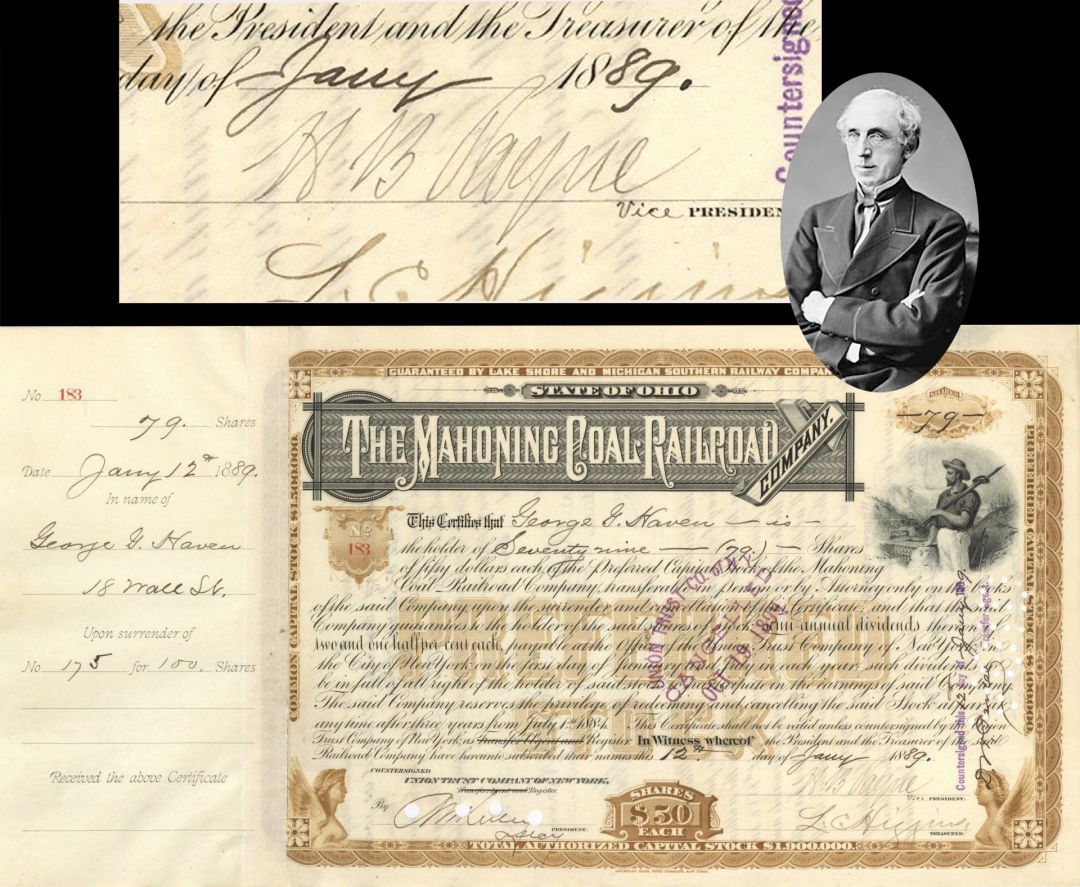 the President and the Treasurer of the
day of Jany 1889.
H B Payne
Vice PRESIDEN
L. C. Higgins
Countersigned
No 183
79. Shares
Date Jany 12th 1889.
In name of
George G. Haven
18 Wall St.
Upon surrender of
No 175 for 100. Shares
Received the above Certificate
GUARANTEED BY LAKE SHORE AND MICHIGAN SOUTHERN RAILWAY COMPANY
STATE OF OHIO
THE MAHONING COAL RAILROAD
COMPANY.
SHARES
79
COMMON CAPITAL STOCK $1,500,000.
PREFERRED CAPITAL STOCK $400,000.
No
183
This Certifies that George G. Haven is
the holder of Seventy nine (79.) Shares
of fifty dollars each of the Preferred Capital Stock of the Mahoning
Coal Railroad Company, transferable in person or by Attorney only on the books
of the said Company upon the surrender and cancellation of this Certificate, and that the said
Company guarantees to the holder of the said shares of stock, semi-annual dividends thereon
two and one half per cent each, payable at the Office of the Union Trust Company of New York
the City of New York on the first day of January and July in each year, such dividends
be in full of all right of the holder of said stock to participate in the earnings of said Company.
The said Company reserves the privilege of redeeming and cancelling the said Stock at par
any time after three years from July 1st 1884. This Certificate shall not be valid unless countersigned by the Union
Trust Company of New York as Transfer Agent and Register. In Witness whereof the President and the Treasurer of the said
Railroad Company have hereunto subscribed their names this 12th day of Jany 1889.
PREFERRED
STOCK
UNION TRUST CO. OF N.Y.
CANCELLED
OCT 19
Countersigned this 12th day of Jany 1889.
COUNTERSIGNED
UNION TRUST COMPANY OF NEW YORK,
Transfer Agent and Register.
By
PRESIDENT.
H B Payne
Vice PRESIDENT.
L. C. Higgins
TREASURER.
SHARES
$50
EACH
TOTAL AUTHORIZED CAPITAL STOCK $1,900,000.
AMERICAN BANK NOTE COMPANY, NEW YORK.